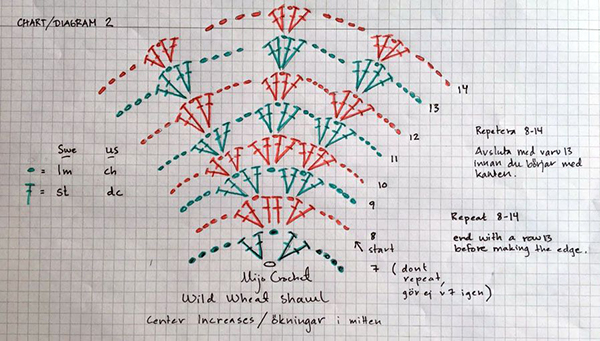 CHART/DIAGRAM 2
14
13
12
11
10
9
8
start
7 (dont
repeat,
gör ej v7 igen)
Swe us
= lm ch
= st dc
Repetera 8-14
Avsluta med varv 13
innan du börjar med
kanten.
Repeat 8-14
end with a row 13
before making the edge.
Mijo Crochet
Wild Wheat Shawl
Center Increases/ökningar i mitten